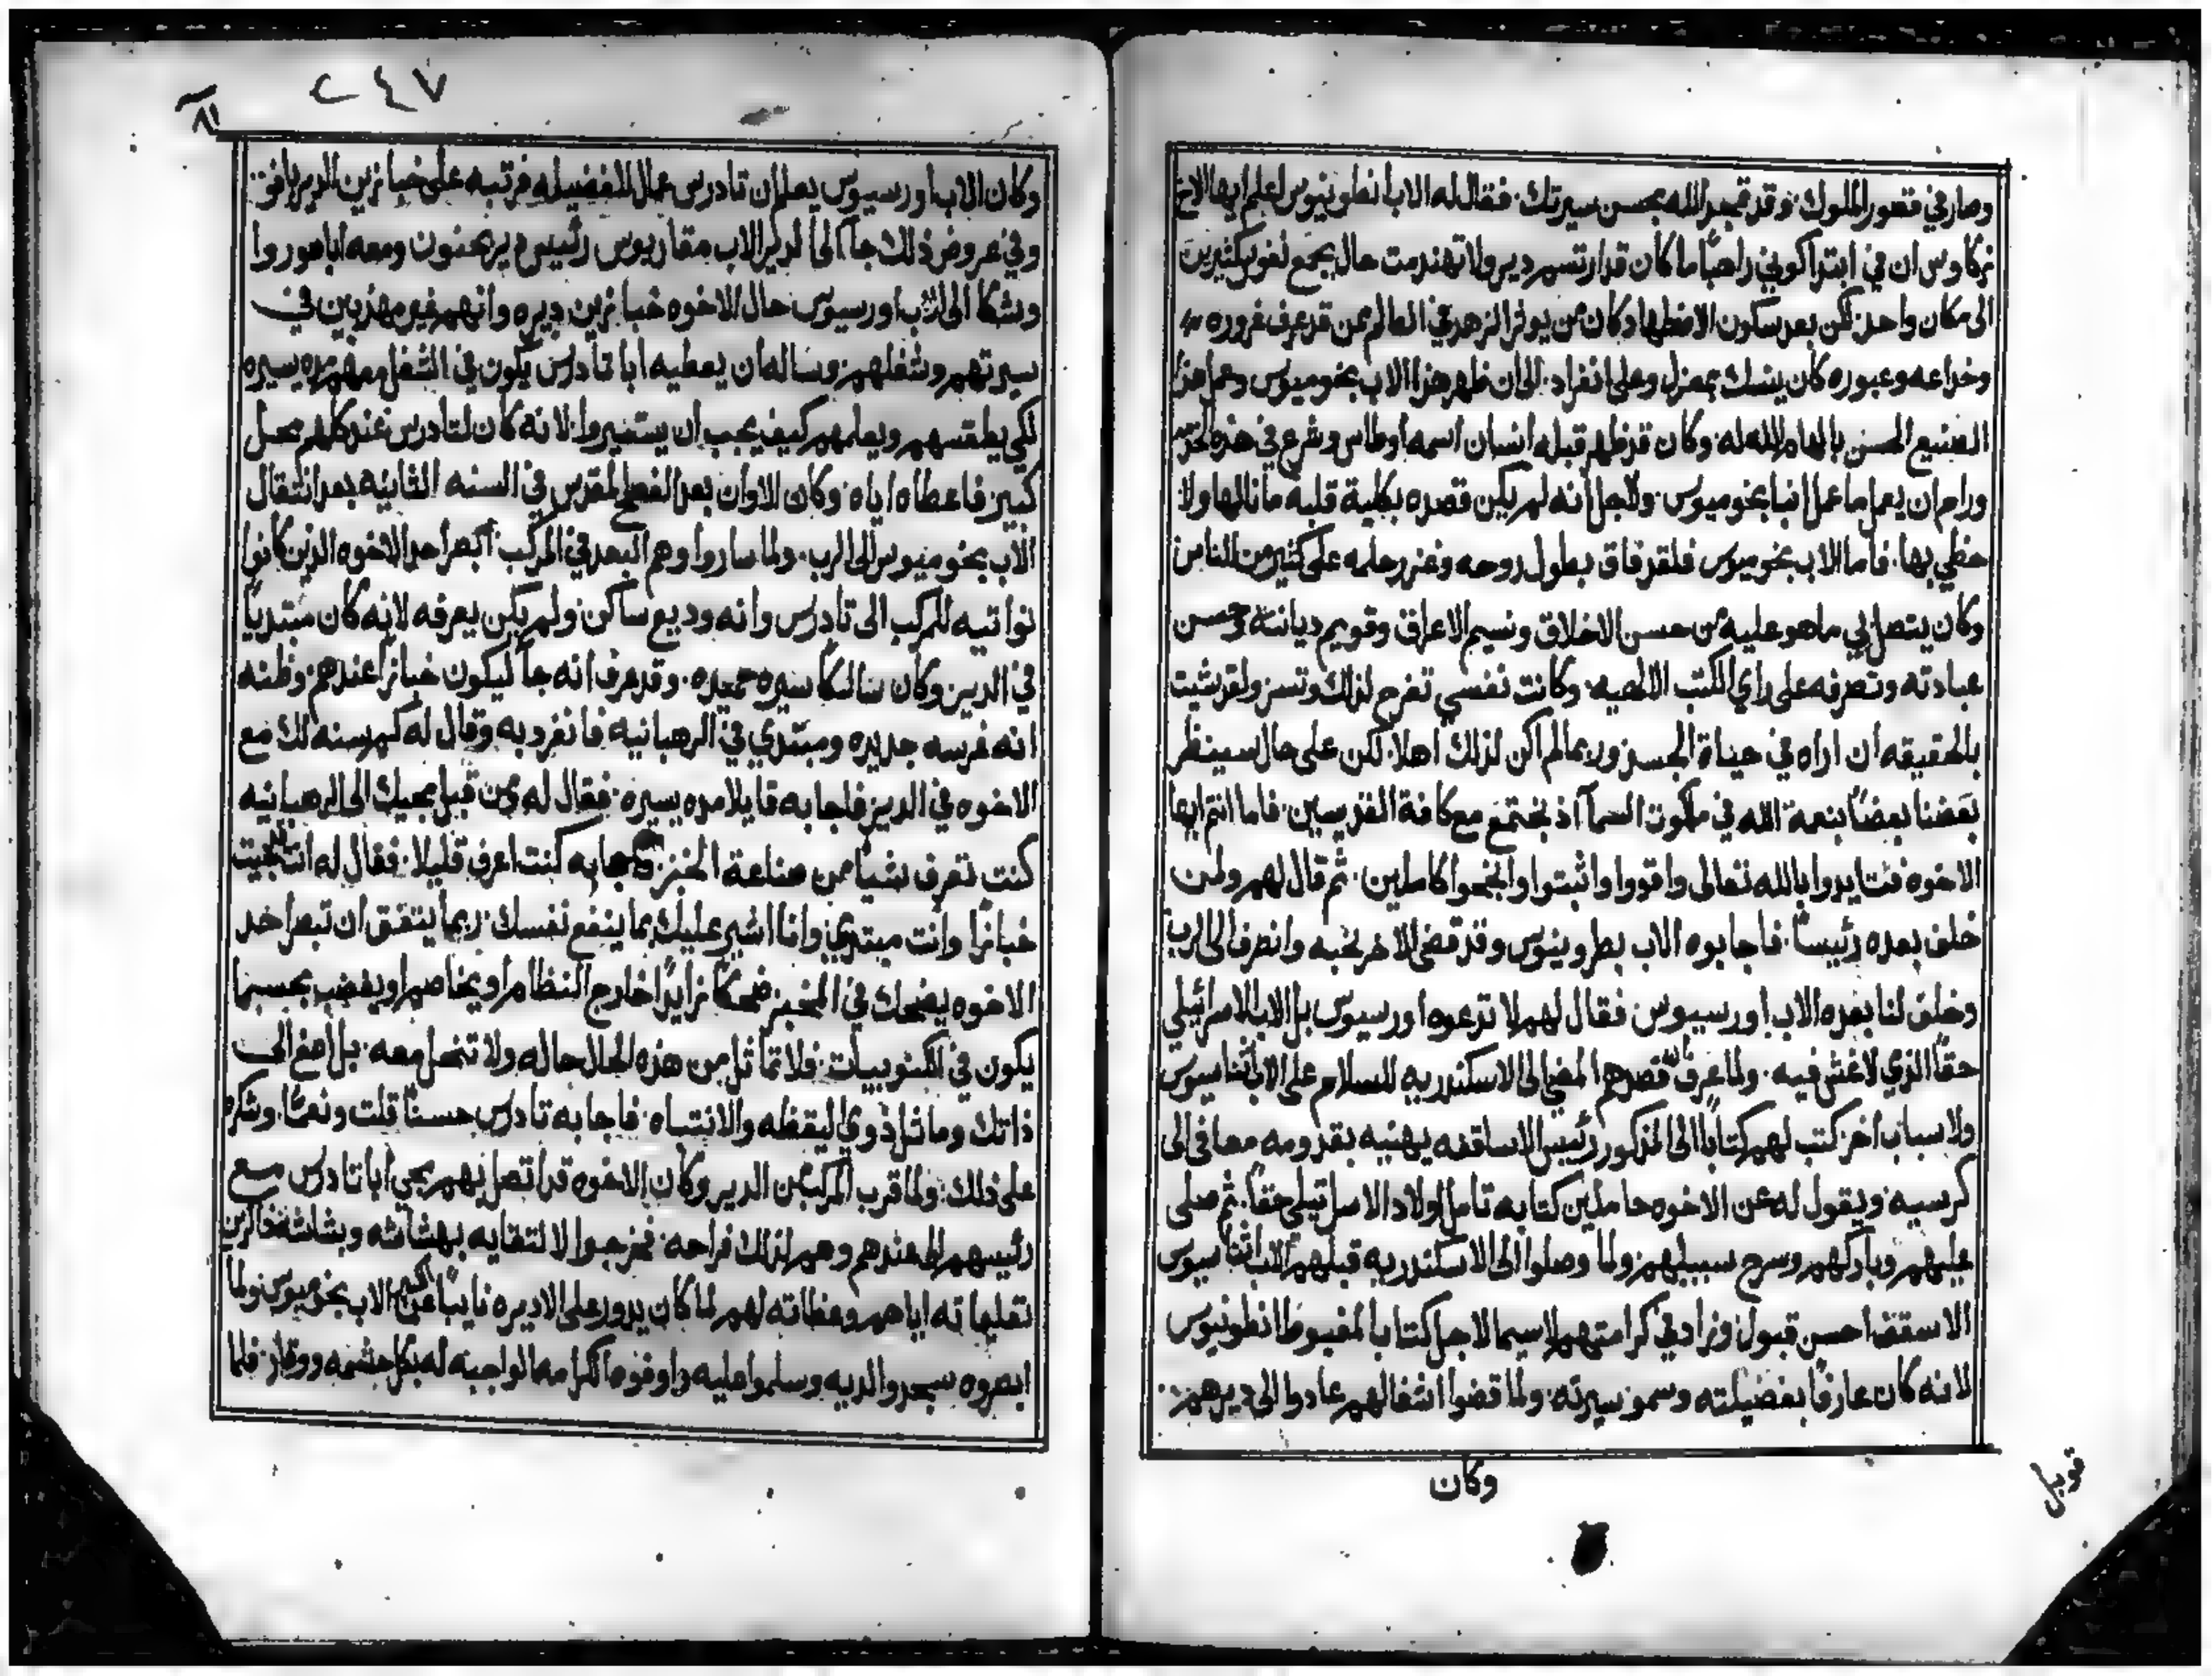 وصار في قصور الملوك. وقد تمجد الله بحسن سيرتك. فقال له الاب انطونيوس اعلم ايها الاخ
زكاوس ان في ابتدا كوني راهبًا ما كان قد ارتسم دير ولا تهندمت حال بجمع نفوس كثيرين
الى مكان واحد. لكن بعد سكون الاضطهاد كان من يوثر الزهد في العالم ممن قد عرف غروره
وخداعه وعبوره كان ينسك بمعزل وعلى انفراد. الى ان ظهر هذا الاب بخوميوس وعمل هذا
الصنيع الحسن بالهام الله له. وكان قد ظهر قبله انسان اسمه اوطاس وشرع في هذه الخدمه
ورام ان يعمل ما عمل انبا بخوميوس. ولاجل انه لم يكن قصده بكلية قلبه ما نالها ولا
حظي بها. فاما الاب بخوميوس فلقد فاق بطول روحه وغزر حلمه على كثير من الناس
وكان يتصل بي ما هو عليه من حسن الاخلاق ونسيم الاعراق وقويم ديانته وحسن
عبادته وتصرفه على راي الكتب الالهيه. وكانت نفسي تفرح لذلك وتسر ولقد شيت
بالحقيقه ان اراه في حياة الجسد وربما لم اكن لذلك اهلا. لكن على حال سينظر
بعضنا بعضًا بنعمة الله في ملكوت السمآ اذ نجتمع مع كافة القديسين. فاما انتم ايها
الاخوه فتايدوا بالله تعالى واقووا واثبتوا وانجحوا كاملين. ثم قال لهم ولمن
خلف بعده رئيسًا. فاجابوه الاب بطرونيوس وقد قضى الاخر نحبه وانصرف الى الرب
وخلف لنا بعده الاب اورسيوس فقال لهم لا تدعوه اورسيوس بل الاب الاسرائيلي
حقًا الذي لا غش فيه. ولما عرف ان قصدهم المضي الى الاسكندريه للسلام على الاب اثناسيوس
ولاسباب اخر. كتب لهم كتابًا الى المذكور رئيس الاساقفه يهنيه بقدومه معافى الى
كرسيه. ويقول له عن الاخوه حاملين كتابه تامل اولاد الاسرائيلي حقًا. ثم صلى
عليهم وباركهم وسرح سبيلهم. ولما وصلوا الى الاسكندريه قبلهم الاب اثناسيوس
الاسقف احسن قبول وزاد في كرامتهم لاسيما لاجل كتاب المغبوط انطونيوس
لانه كان عارفًا بفضيلته وسمو سيرته. ولما قضوا اشغالهم عادوا الى ديرهم.
وكان
قوبل
٢٤٧
وكان الاب اورسيوس يعلم ان تادرس عمال للفضيله فرتبه على خبازين الدير بافو.
وفي عروض ذلك جآ الى الدير الاب مقاريوس رئيس دير بخنون ومعه ابا هوروا
وشكا الى الاب اورسيوس حال الاخوه خبازين ديره وانهم غير مهذبين في
سيرتهم وشغلهم. وساله ان يعطيه ابا تادرس يكون في الشغل معهم مده يسيره
لكي يطقسهم ويعلمهم كيف يجب ان يستسيروا. لانه كان لتادرس عند كلهم محل
كبير. فاعطاه اياه. وكان الاوان بعد الفصح المقدس في السنه الثانيه بعد انتقال
الاب بخوميوس الى الرب. ولما ساروا وهم البعد في المركب. ابصر احد الاخوه الذين كانوا
نواتيه للمركب الى تادرس وانه وديع ساكن ولم يكن يعرفه لانه كان مبتديًا
في الدير وكان سالكًا سيره حميده. وقد عرف انه جآ ليكون خبازًا عندهم. وظنه
انه غرسه جديده ومبتدي في الرهبانيه فانفرد به وقال له كم سنه لك مع
الاخوه في الدير فاجابه قايلا مده يسيره. فقال له ومن قبل مجيك الى الرهبانيه
كنت تعرف شيا من صناعة الخبز. فاجابه كنت اعرف قليلا. فقال له انت جيت
خبازا وانت مبتدي. وانا اشير عليك بما ينفع نفسك. ربما يتفق ان تبصر احد
الاخوه يضحك في المخبز ضحكًا زايدًا خارج النظام او يخاصم او يغضب بحسبما
يكون في الكنوبيات. فلا تماثل من هذه الحلا حاله ولا تنحل معه. بل اصغ الى
ذاتك وماثل ذوي اليقظه والانتباه. فاجابه تادرس حسنًا قلت ونعمًا. وشكره
على ذلك. ولما قرب المركب من الدير وكان الاخوه قد اتصل بهم مجي ابا تادرس مع
رئيسهم الى عندهم وهم لذلك فراحه. فخرجوا لالتقايه بهشاشه وبشاشه ذاكرين
تعليماته اياهم وعظاته لهم لما كان يدور على الاديره نايبًا عن الاب بخوميوس. ولما
ابصروه سجدوا لديه وسلموا عليه واوفوه الكرامه الواجبه له بكل حشمه ووقار. فلما